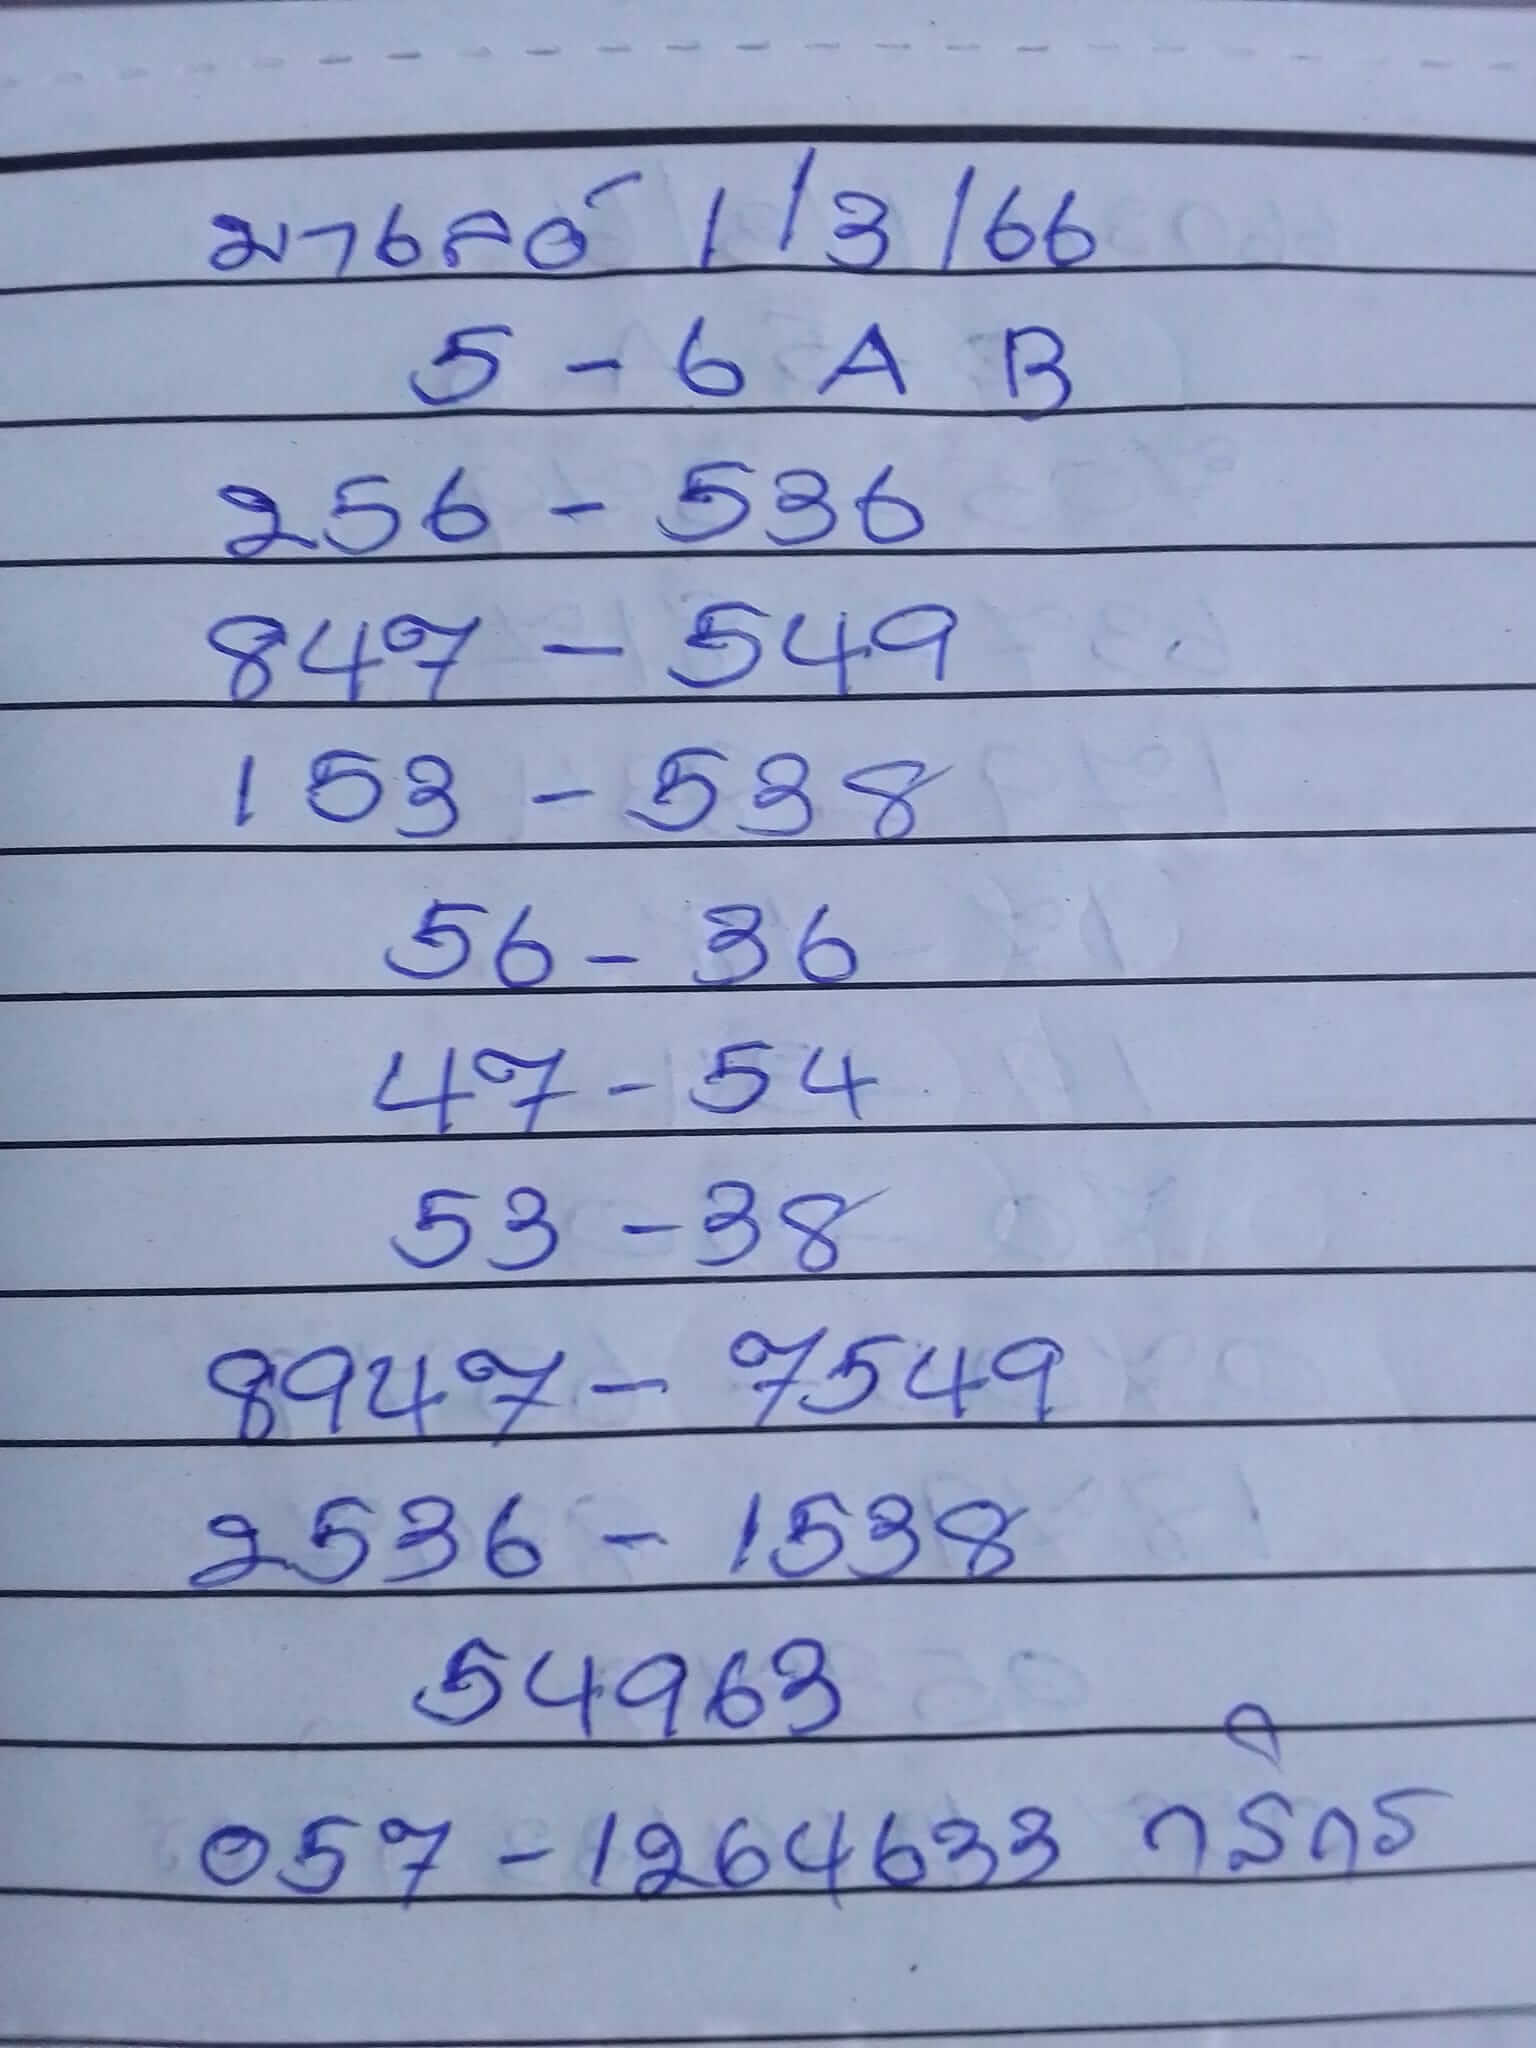 มาเลย์ 1/3/66
5-6 A B
256-536
847-549
153-538
56-36
47-54
53-38
8947-7549
2536-1538
54963
057-1264633 กสิกร